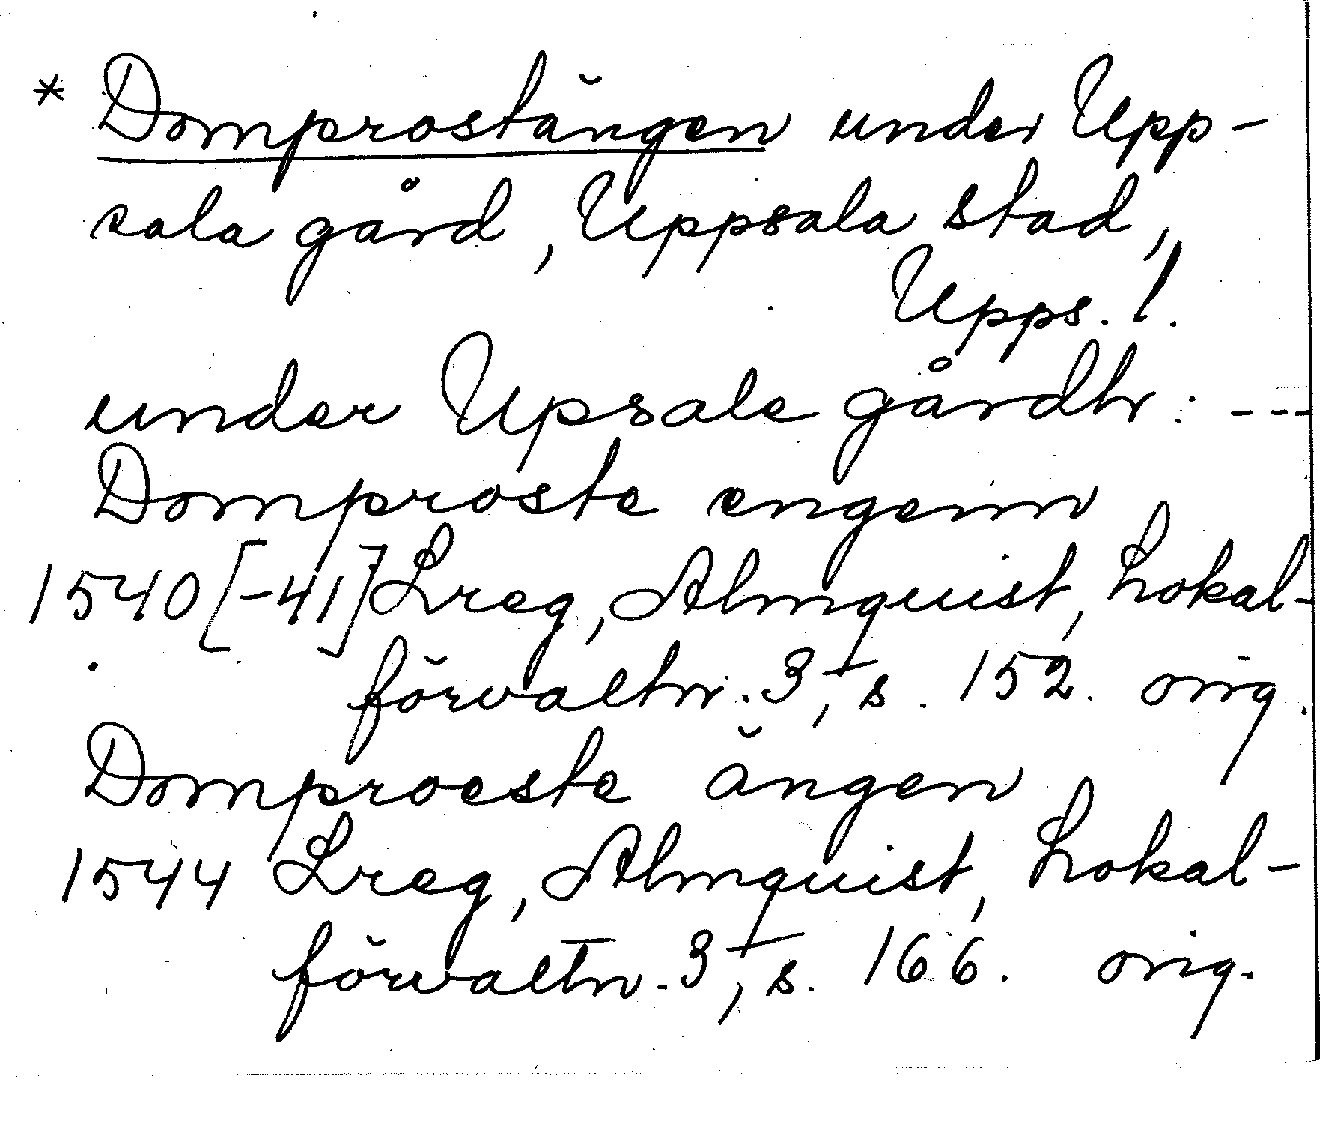 * Domprostängen under Upp-
sala gård, Uppsala stad,
Upps. l.
under Upsale gårdh: ---
Domproste engenn
1540[-41] Lreg, Almquist, Lokal-
förvaltn. 3, s. 152. orig.
Domproeste ängen
1544 Lreg, Almquist, Lokal-
förvaltn. 3, s. 166. orig.